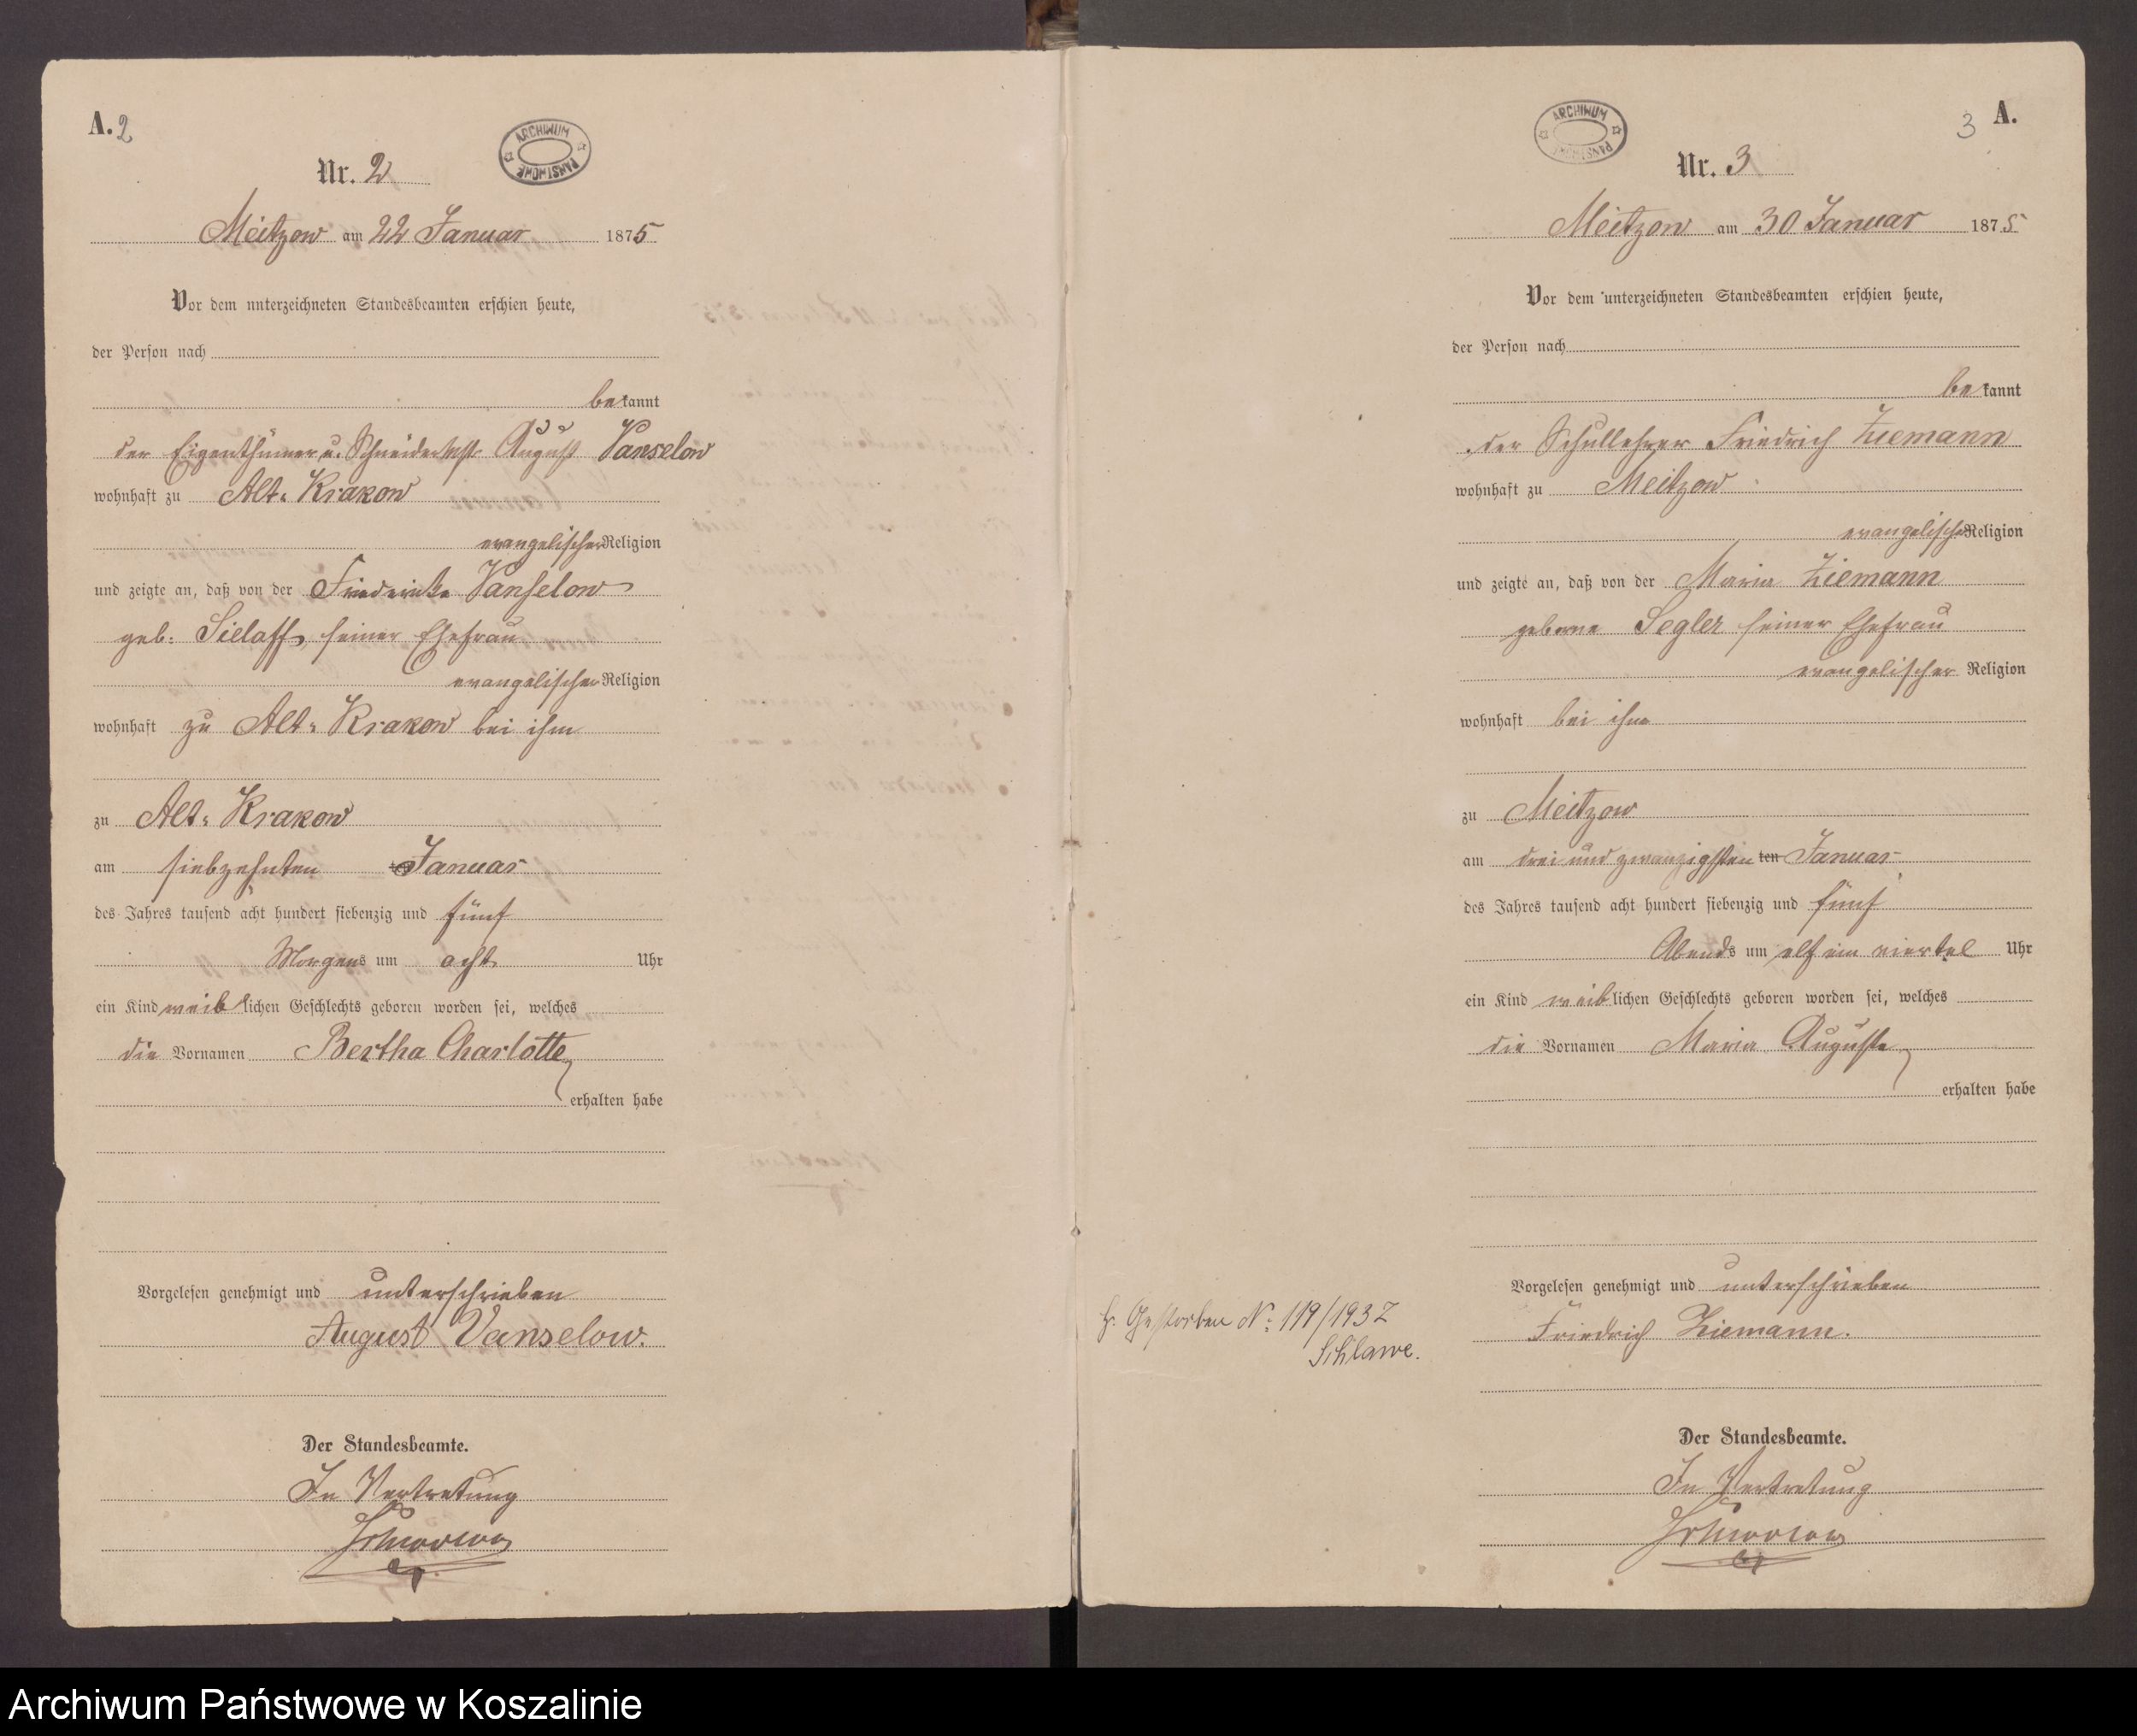 A. 2
ARCHIWUM PAŃSTWOWE
Nr. 2
Meitzow am 22 Januar 1875
Vor dem unterzeichneten Standesbeamten erschien heute,
der Person nach
bekannt
der Eigenthümer u. Schneidermstr August Vanselow
wohnhaft zu Alt-Krakow
evangelischer Religion
und zeigte an, daß von der Friedericke Vanselow
geb: Sielaff, seiner Ehefrau
evangelischer Religion
wohnhaft zu Alt-Krakow bei ihm
zu Alt-Krakow
am siebzehnten ten Januar
des Jahres tausend acht hundert siebenzig und fünf
Morgens um acht Uhr
ein Kind weiblichen Geschlechts geboren worden sei, welches
die Vornamen Bertha Charlotte
erhalten habe
Vorgelesen genehmigt und unterschrieben
August Vanselow.
Der Standesbeamte.
In Vertretung
3 A.
ARCHIWUM PAŃSTWOWE
Nr. 3
Meitzow am 30 Januar 1875
Vor dem unterzeichneten Standesbeamten erschien heute,
der Person nach
bekannt
der Schullehrer Friedrich Ziemann
wohnhaft zu Meitzow
evangelischer Religion
und zeigte an, daß von der Maria Ziemann
geborne Segler seiner Ehefrau
evangelischer Religion
wohnhaft bei ihm
zu Meitzow
am drei und zwanzigsten ten Januar
des Jahres tausend acht hundert siebenzig und fünf
Abends um elf ein viertel Uhr
ein Kind weiblichen Geschlechts geboren worden sei, welches
die Vornamen Maria Auguste
erhalten habe
Vorgelesen genehmigt und unterschrieben
Friedrich Ziemann.
Der Standesbeamte.
In Vertretung
Gestorben No: 119/1937
Schlawe.
Archiwum Państwowe w Koszalinie